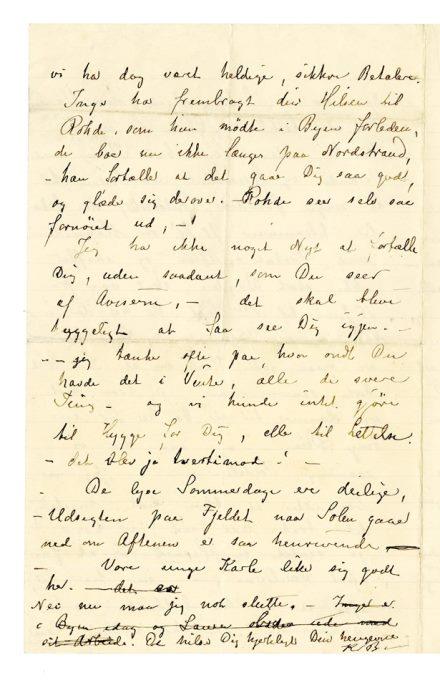 vi har dog været heldige, sikkre Betalere.
Inga har frembragt din Hilsen til
Rohde, som hun mødte i Byen forleden,
de boer nu ikke længer paa Nordstrand,
- han fortæller at det gaar Dig saa godt,
og glæde sig derover. - Rohde seer selv saa
fornøiet ud, -!
Jeg har ikke noget Nyt at fortælle
Dig, uden saadant, som Du seer
af Aviserne, - det skal blive
hyggeligt at faa see Dig igjen. -
- - jeg tænkte ofte paa, hvor ondt Du
havde det i Vinter, alle de svere
Ting - og vi kunde intet gjøre
til Hygge for Dig, eller til Lettelse.
- det blev jo tvertimod! -
- De lyse Sommerdage ere deilige,
- Udsigten paa Fjeldet naar Solen gaaer
ned om Aftenen er saa henrivende
- Vore unge Karle liker sig godt
her. - det er
Nei nu maa jeg nok slutte. - Inga er
i Byen idag og Laura ude med
sit Arbeide. De hilse Dig hjerteligst Din hengivne